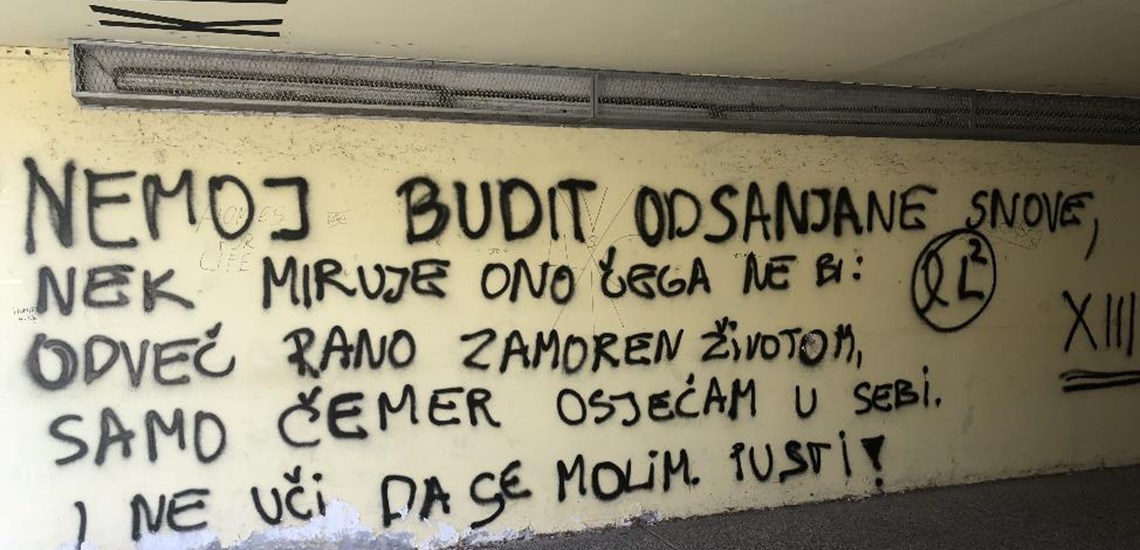 NEMOJ BUDIT ODSANJANE SNOVE,
NEK MIRUJE ONO ČEGA NE BI:
ODVEĆ RANO ZAMOREN ŽIVOTOM,
SAMO ČEMER OSJEĆAM U SEBI.
I NE UČI DA SE MOLIM. PUSTI!
L²
XIII